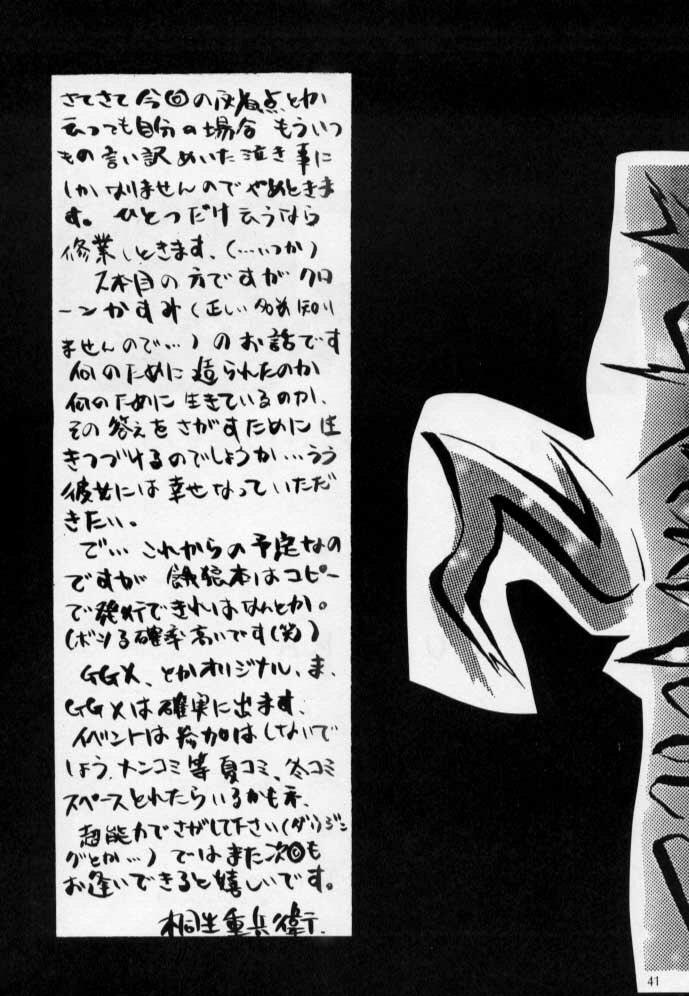 さてさて今回の反省点とか
云っても自分の場合もういつ
もの言い訳めいた泣き事に
しかなりませんのでやめときま
す。ひとつだけ云うなら
修業しときます、(……いつか)
2本目の方ですがクロ
ーンかすみ(正しい名前知り
ませんので…)のお話です
何のために造られたのか
何のために生きているのか、
その答えをさがすために生
きつづけるのでしょうか…うう
彼女には幸せなっていただ
きたい。
で…これからの予定なの
ですが餓狼本はコピー
で発行できればなんとか。
(ボツる確率高いです(笑)
GGX、とかオリジナル、ま、
GGXは確実に出ます、
イベントは参加はしないで
しょう、ナンコミ等夏コミ、冬コミ
スペースとれたらいるかもネ、
超能力でさがして下さい(ダウジン
グとか…)ではまた次回も
お逢いできると嬉しいです。
桐生重兵衛.
41